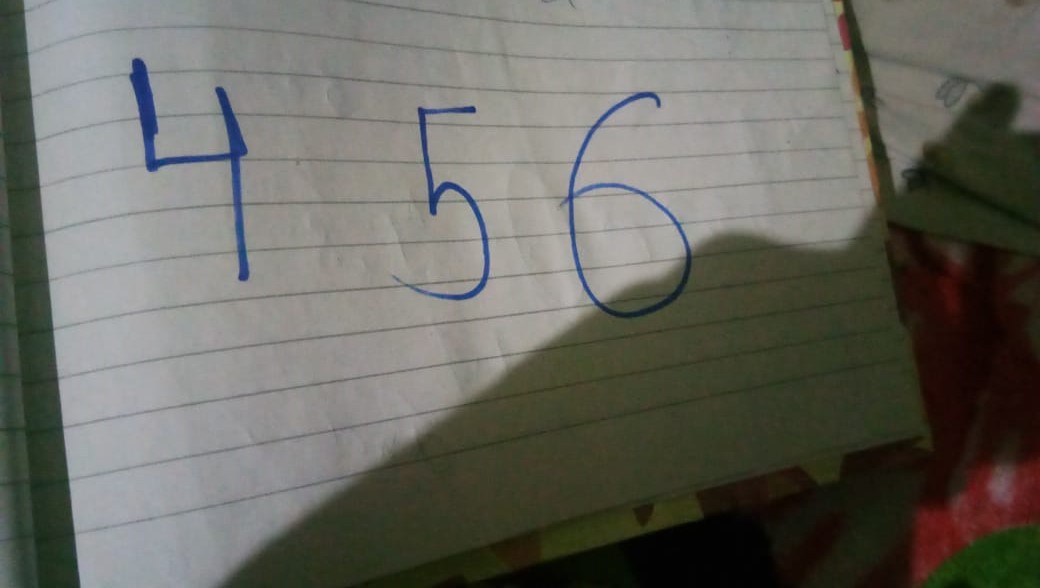 4 5 6